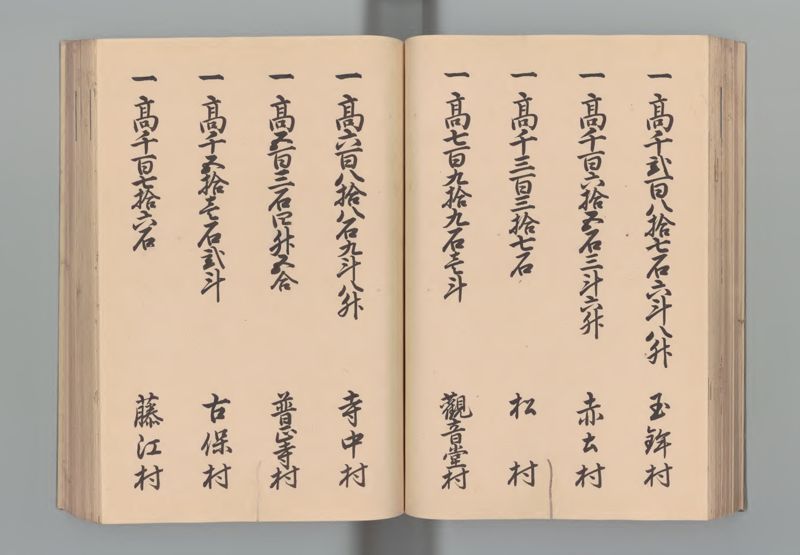 一髙千弐百八拾七石六斗八升 玉鉾村
一髙千百六拾五石三斗六升 赤土村
一髙千三百三拾七石 松村
一髙七百九拾九石壱斗 觀音堂村
一髙六百八拾八石九斗八升 寺中村
一髙五百三石四升五合 普正寺村
一髙千五拾壱石弐斗 古保村
一髙千百七拾六石 藤江村